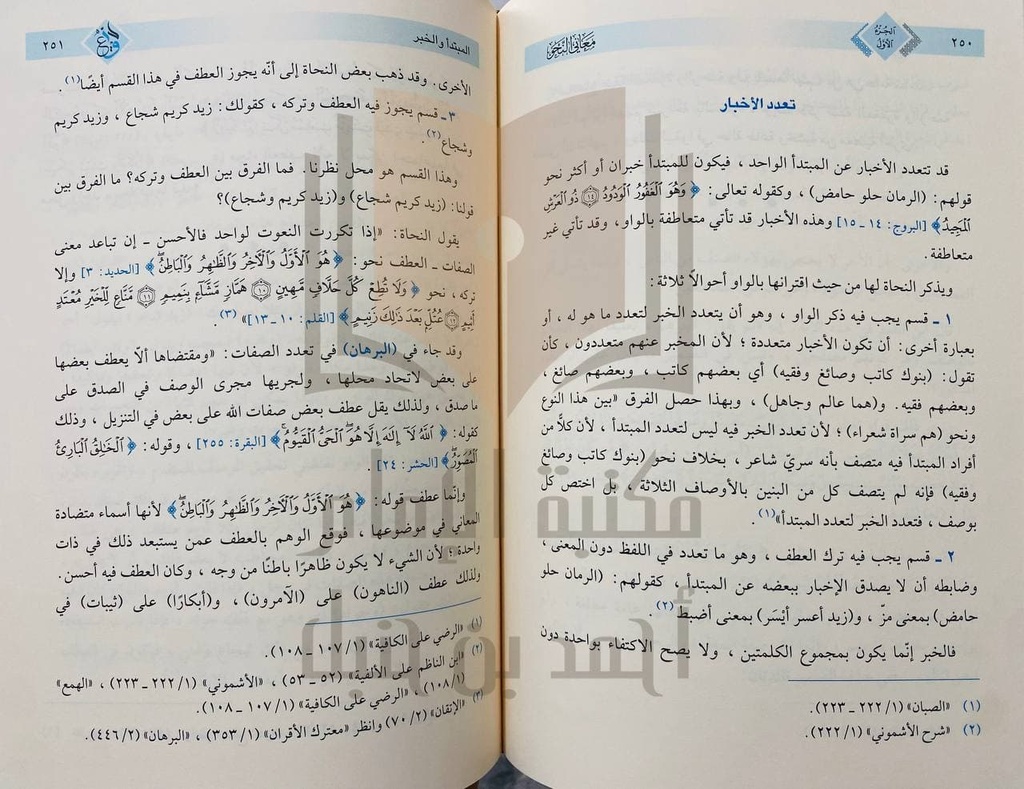 ٢٥٠
الجزء
الأول
معاني النحو
تعدد الأخبار
قد تتعدد الأخبار عن المبتدأ الواحد ، فيكون للمبتدأ خبران أو أكثر نحو
قولهم : (الرمان حلو حامض) ، وكقوله تعالى : ﴿ وَهُوَ ٱلْغَفُورُ ٱلْوَدُودُ ١٤ ذُو ٱلْعَرْشِ
ٱلْمَجِيدُ﴾ [البروج : ١٤ ـ ١٥] وهذه الأخبار قد تأتي متعاطفة بالواو ، وقد تأتي غير
متعاطفة .
ويذكر النحاة لها من حيث اقترانها بالواو أحوالاً ثلاثة :
١ ـ قسم يجب فيه ذكر الواو ، وهو أن يتعدد الخبر لتعدد ما هو له ، أو
بعبارة أخرى : أن تكون الأخبار متعددة ؛ لأن المخبر عنهم متعددون ، كأن
تقول : (بنوك كاتب وصائغ وفقيه) أي بعضهم كاتب ، وبعضهم صائغ ،
وبعضهم فقيه . و(هما عالم وجاهل) ، وبهذا حصل الفرق «بين هذا النوع
ونحو (هم سراة شعراء) ؛ لأن تعدد الخبر فيه ليس لتعدد المبتدأ ، لأن كلاًّ من
أفراد المبتدأ فيه متصف بأنه سريّ شاعر ، بخلاف نحو (بنوك كاتب وصائغ
وفقيه) فإنه لم يتصف كل من البنين بالأوصاف الثلاثة ، بل اختص كل
بوصف ، فتعدد الخبر لتعدد المبتدأ»(١) .
٢ ـ قسم يجب فيه ترك العطف ، وهو ما تعدد في اللفظ دون المعنى ،
وضابطه أن لا يصدق الإخبار ببعضه عن المبتدأ ، كقولهم : (الرمان حلو
حامض) بمعنى مزّ ، و(زيد أعسر أيْسَر) بمعنى أضبط(٢) .
فالخبر إنّما يكون بمجموع الكلمتين ، ولا يصح الاكتفاء بواحدة دون
(١) «الصبان» (١/ ٢٢٢ ـ ٢٢٣).
(٢) «شرح الأشموني» (١/ ٢٢٢).
المبتدأ والخبر
٢٥١
الأخرى . وقد ذهب بعض النحاة إلى أنّه يجوز العطف في هذا القسم أيضًا(١) .
٣ ـ قسم يجوز فيه العطف وتركه ، كقولك : زيد كريم شجاع ، وزيد كريم
وشجاع(٢) .
وهذا القسم هو محل نظرنا . فما الفرق بين العطف وتركه؟ ما الفرق بين
قولنا : (زيد كريم شجاع) و(زيد كريم وشجاع)؟
يقول النحاة : «إذا تكررت النعوت لواحد فالأحسن ـ إن تباعد معنى
الصفات ـ العطف نحو : ﴿ هُوَ ٱلْأَوَّلُ وَٱلْآخِرُ وَٱلظَّٰهِرُ وَٱلْبَاطِنُ ﴾ [الحديد : ٣] وإلا
تركه ، نحو ﴿ وَلَا تُطِعْ كُلَّ حَلَّافٍ مَّهِينٍ ١٠ هَمَّازٍ مَّشَّآءٍ بِنَمِيمٍ ١١ مَّنَّاعٍ لِّلْخَيْرِ مُعْتَدٍ
أَثِيمٍ ١٢ عُتُلٍّ بَعْدَ ذَٰلِكَ زَنِيمٍ ﴾ [القلم : ١٠ ـ ١٣]»(٣) .
وقد جاء في (البرهان) في تعدد الصفات : «ومقتضاها ألاّ يعطف بعضها
على بعض لاتحاد محلها ، ولجريها مجرى الوصف في الصدق على
ما صدق ، ولذلك يقل عطف بعض صفات الله على بعض في التنزيل ، وذلك
كقوله : ﴿ ٱللَّهُ لَآ إِلَٰهَ إِلَّا هُوَ ٱلْحَىُّ ٱلْقَيُّومُ ﴾ [البقرة : ٢٥٥] ، وقوله : ﴿ ٱلْخَٰلِقُ ٱلْبَارِئُ
ٱلْمُصَوِّرُ ﴾ [الحشر : ٢٤] .
وإنّما عطف قوله : ﴿ هُوَ ٱلْأَوَّلُ وَٱلْآخِرُ وَٱلظَّٰهِرُ وَٱلْبَاطِنُ ﴾ لأنها أسماء متضادة
المعاني في موضوعها ، فوقع الوهم بالعطف عمن يستبعد ذلك في ذات
واحدة ؛ لأن الشيء لا يكون ظاهرًا باطنًا من وجه ، وكان العطف فيه أحسن .
ولذلك عطف (الناهون) على (الآمرون) ، و(أبكارًا) على (ثيبات) في
(١) «الرضي على الكافية» (١/ ١٠٧ ـ ١٠٨).
(٢) «ابن الناظم على الألفية» (٥٢ ـ ٥٣) ، «الأشموني» (١/ ٢٢٢ ـ ٢٢٣) ، «الهمع»
(١/ ١٠٨) ، «الرضي على الكافية» (١/ ١٠٧ ـ ١٠٨).
(٣) «الإتقان» (٢/ ٧٠) وانظر «معترك الأقران» (١/ ٣٥٣) ، «البرهان» (٢/ ٤٤٦).
مكتبة الإمام
أحمد بن حنبل